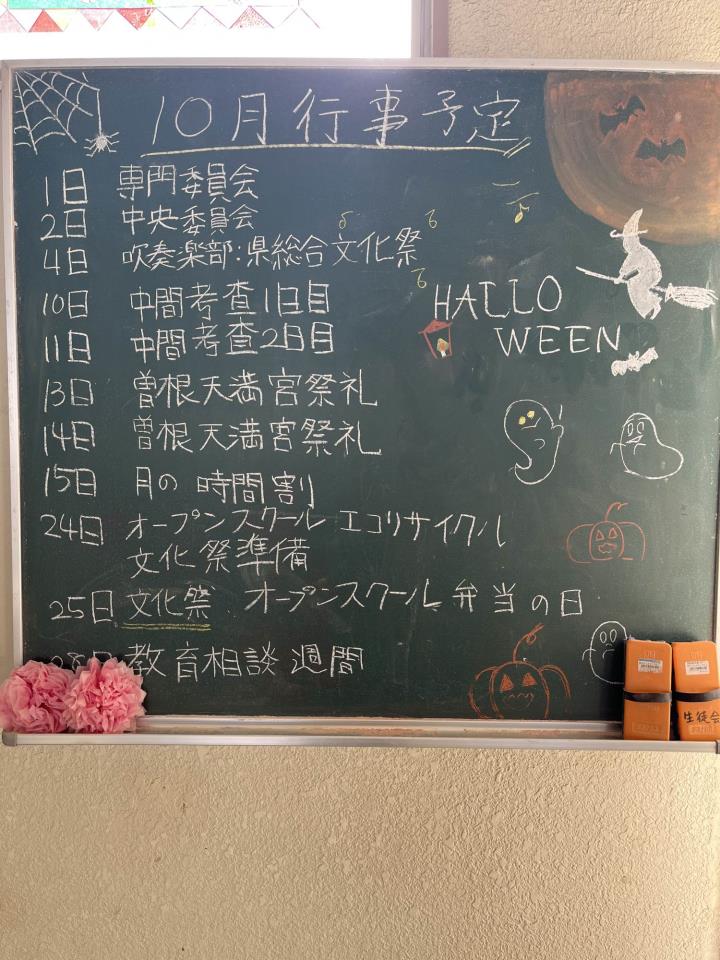 10月行事予定
1日 専門委員会
2日 中央委員会
4日 吹奏楽部:県総合文化祭
10日 中間考査1日目
11日 中間考査2日目
HALLO
WEEN
13日 曽根天満宮祭礼
14日 曽根天満宮祭礼
15日 月の時間割
24日 オープンスクール エコリサイクル
文化祭準備
25日 文化祭 オープンスクール 弁当の日
8日 教育相談週間
生徒会